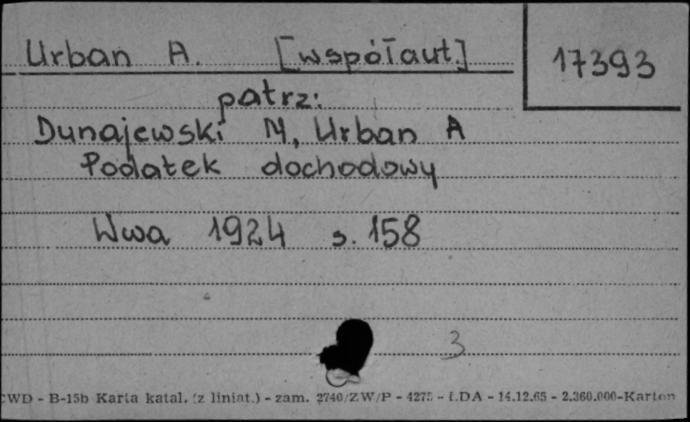 Urban A. [współaut.]
17393
patrz:
Dunajewski M, Urban A
Podatek dochodowy
Wwa 1924 s. 158
3
CWD - B-15b Karta katal. (z liniat.) - zam. 2740/ZW/P - 4275 - ŁDA - 14.12.65 - 2.360.000-Karton